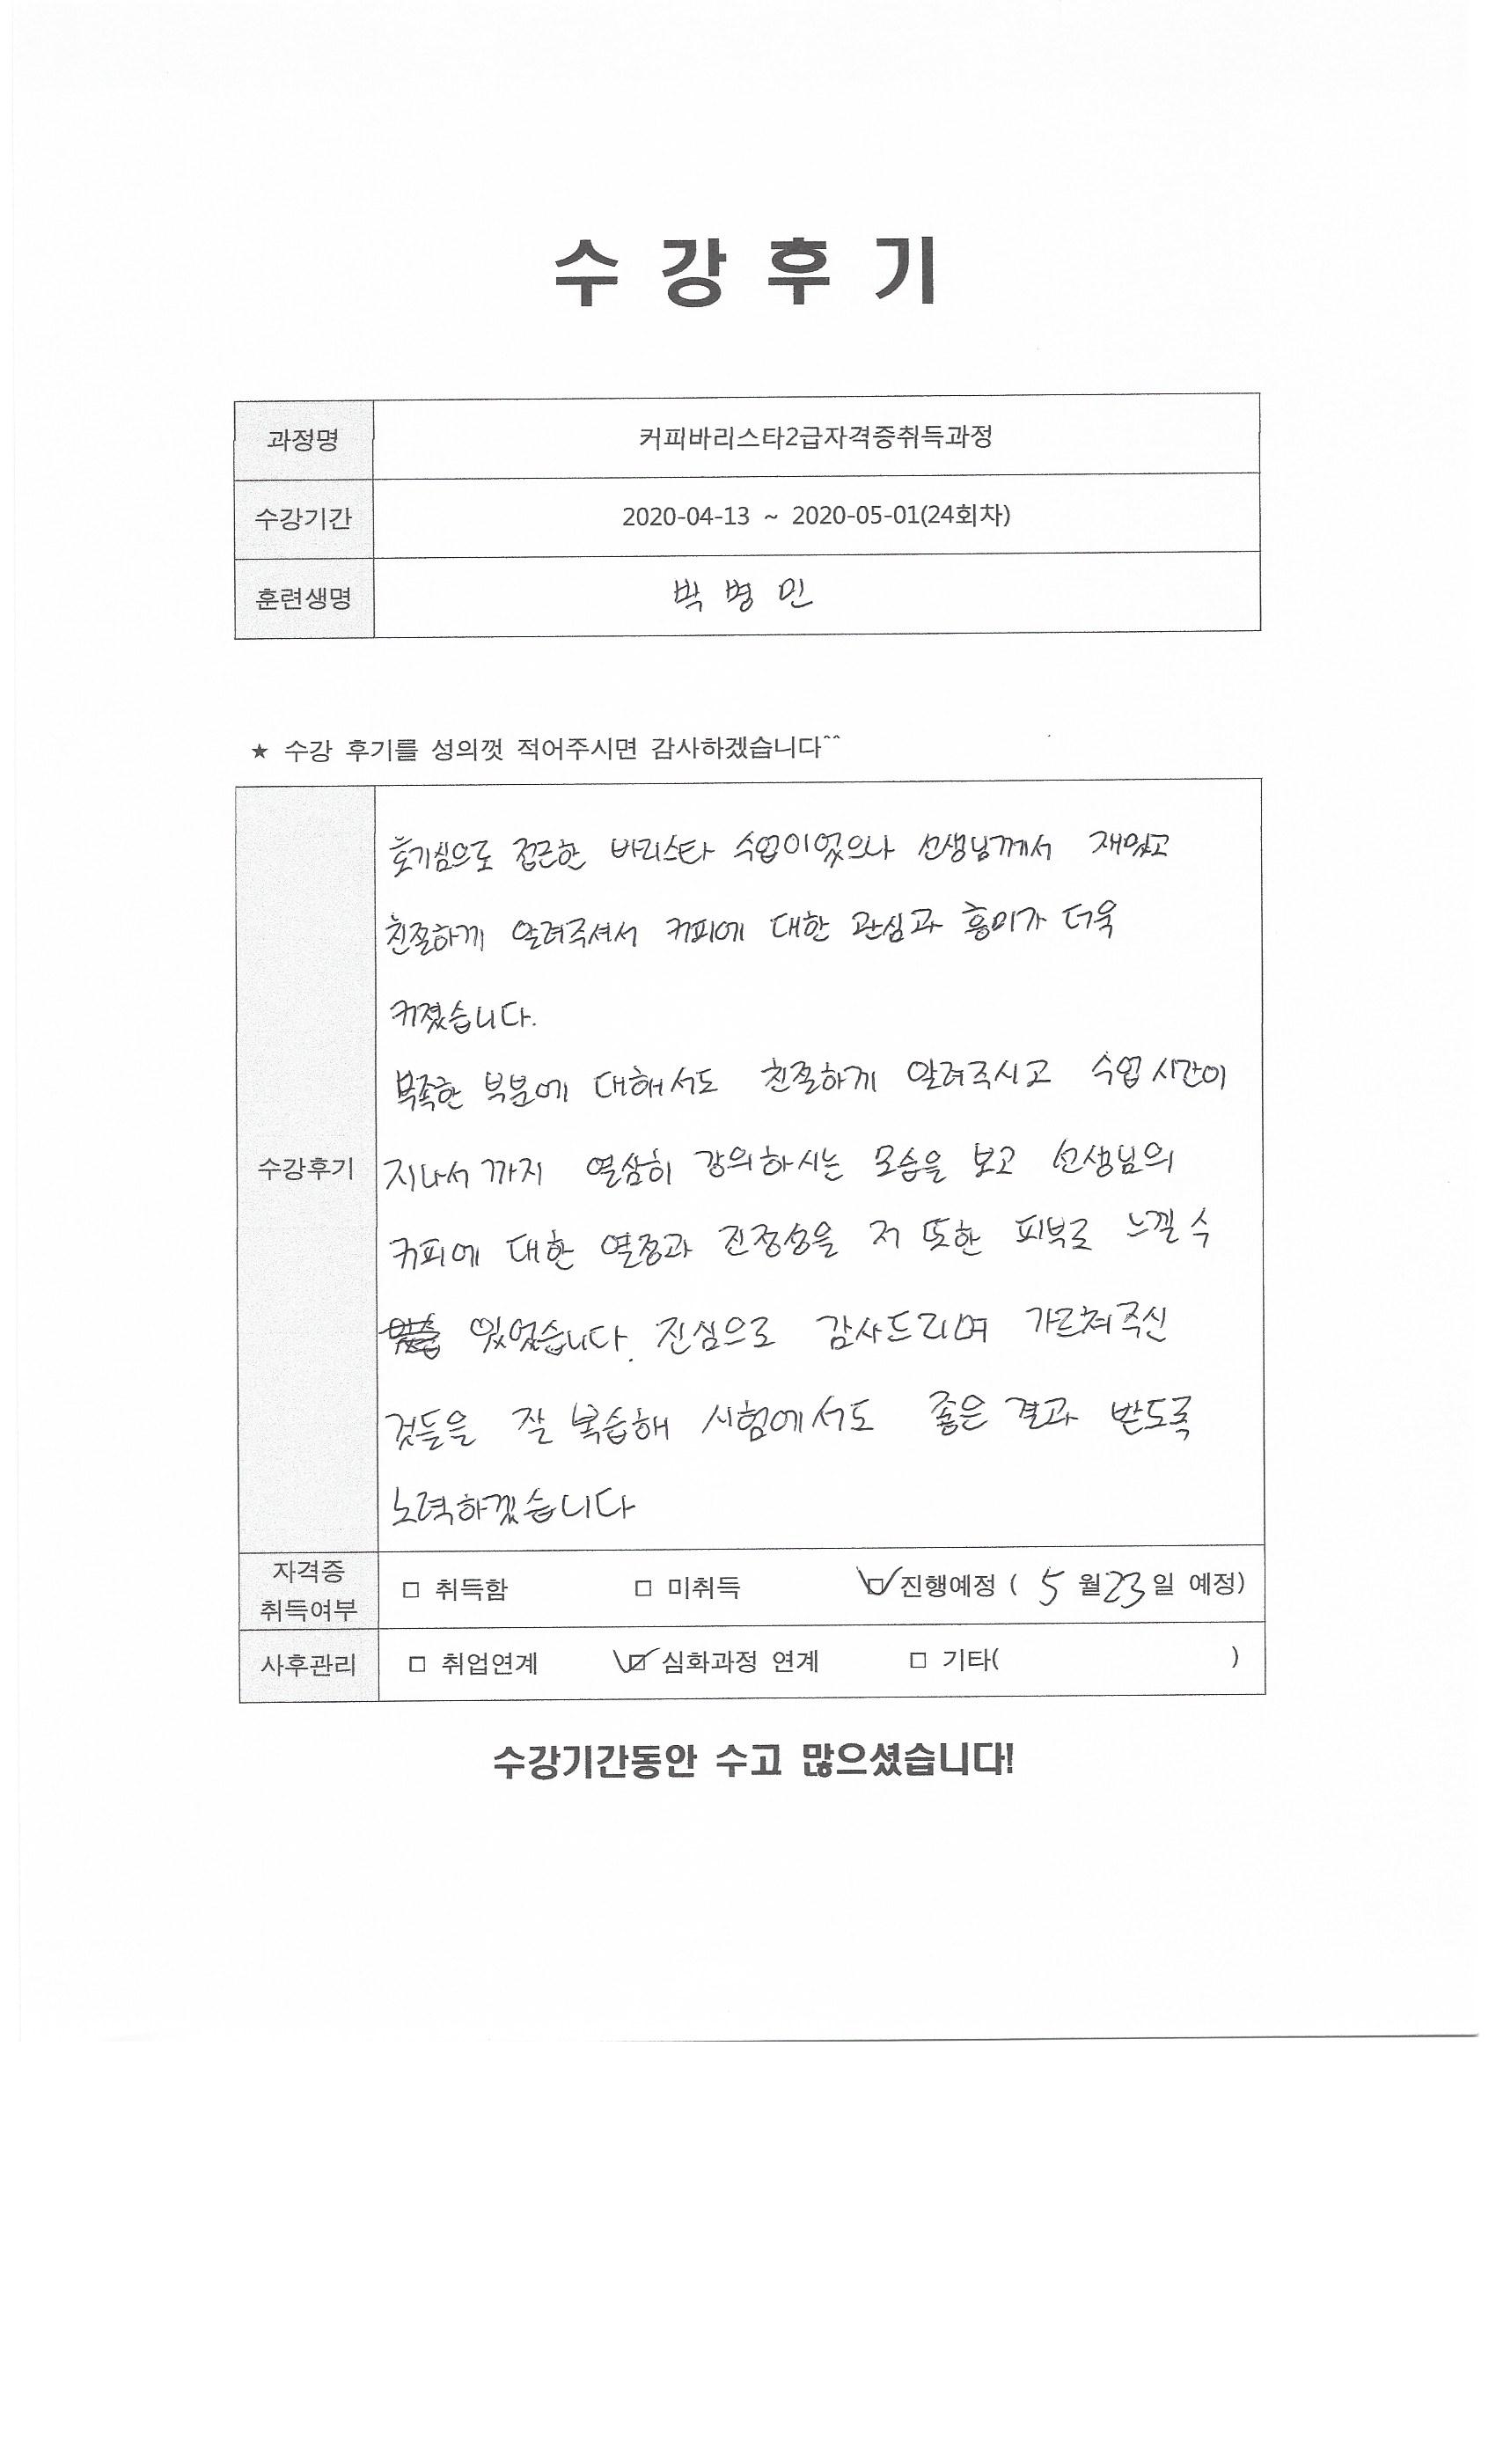 수 강 후 기
과정명 커피바리스타2급자격증취득과정
수강기간 2020-04-13 ~ 2020-05-01(24회차)
훈련생명 박병민
★ 수강 후기를 성의껏 적어주시면 감사하겠습니다^^
호기심으로 접근한 바리스타 수업이었으나 선생님께서 재밌고
친절하게 알려주셔서 커피에 대한 관심과 흥미가 더욱
커졌습니다.
부족한 부분에 대해서도 친절하게 알려주시고 수업 시간이
수강후기 지나서 까지 열심히 강의하시는 모습을 보고 선생님의
커피에 대한 열정과 진정성을 저 또한 피부로 느낄 수
있었습니다. 진심으로 감사드리며 가르쳐주신
것들을 잘 복습해 시험에서도 좋은 결과 받도록
노력하겠습니다
자격증
취득여부 □ 취득함 □ 미취득 ☑ 진행예정 ( 5 월 23 일 예정)
사후관리 □ 취업연계 ☑ 심화과정 연계 □ 기타( )
수강기간동안 수고 많으셨습니다!